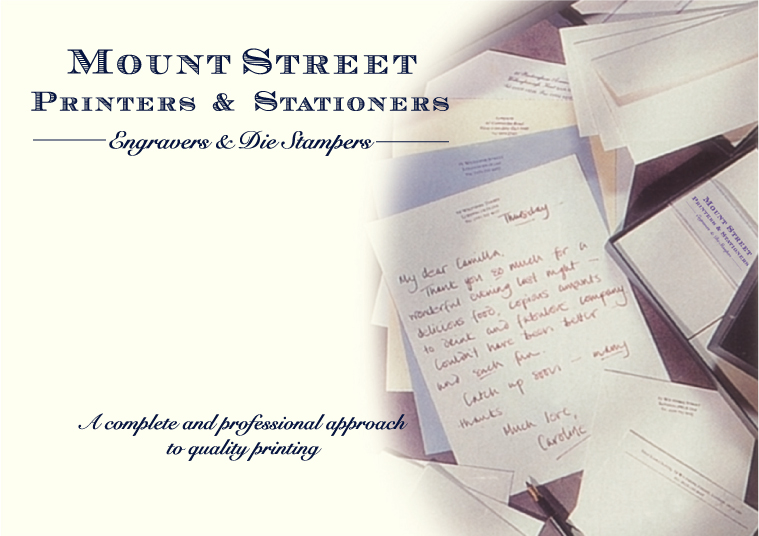 MOUNT STREET
PRINTERS & STATIONERS
Engravers & Die Stampers
A complete and professional approach
to quality printing
Thursday
My dear Camilla,
Thank you so much for a
wonderful evening last night –
delicious food, copious amounts
to drink and fabulous company
Couldn't have been better
and such fun.
Catch up soon – many
thanks
Much love,
Caroline
MOUNT STREET
PRINTERS & STATIONERS
Engravers & Die Stampers